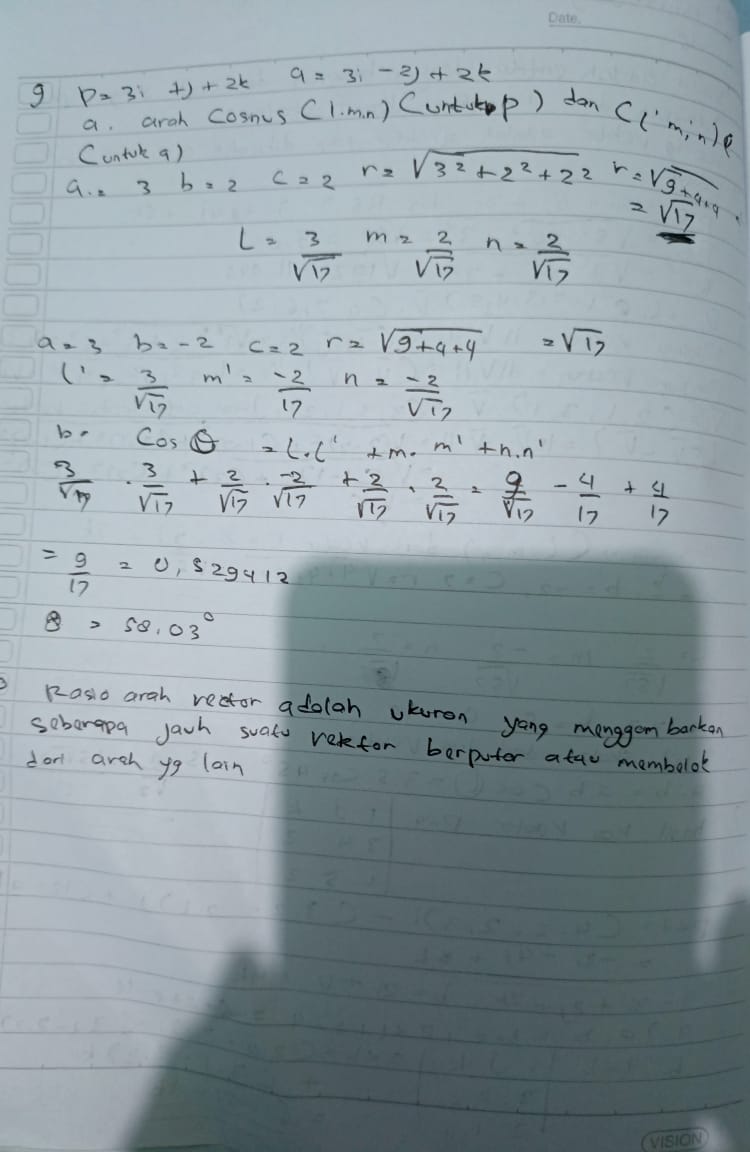 Date.
9 p = 3i + j + 2k q = 3i - 2j + 2k
a. arah Cosnus (l.m.n) (untuk p) dan (l' m, n) e
(untuk q)
a. = 3 b = 2 c = 2 r = √3² + 2² + 2² r = √9+4+4
= √17
L = 3/√17 m = 2/√17 n = 2/√17
a = 3 b = -2 c = 2 r = √9+4+4 = √17
l' = 3/√17 m' = -2/17 n = -2/√17
b. Cos θ = l.l' + m. m' + n.n'
3/√17 . 3/√17 + 2/√17 . -2/√17 + 2/√17 . 2/√17 = 9/√17 - 4/17 + 4/17
= 9/17 = 0,529412
θ = 58,03°
Rasio arah vector adalah ukuran yang menggambarkan
seberapa jauh suatu vektor berputar atau membelok
dari arah yg lain
VISION